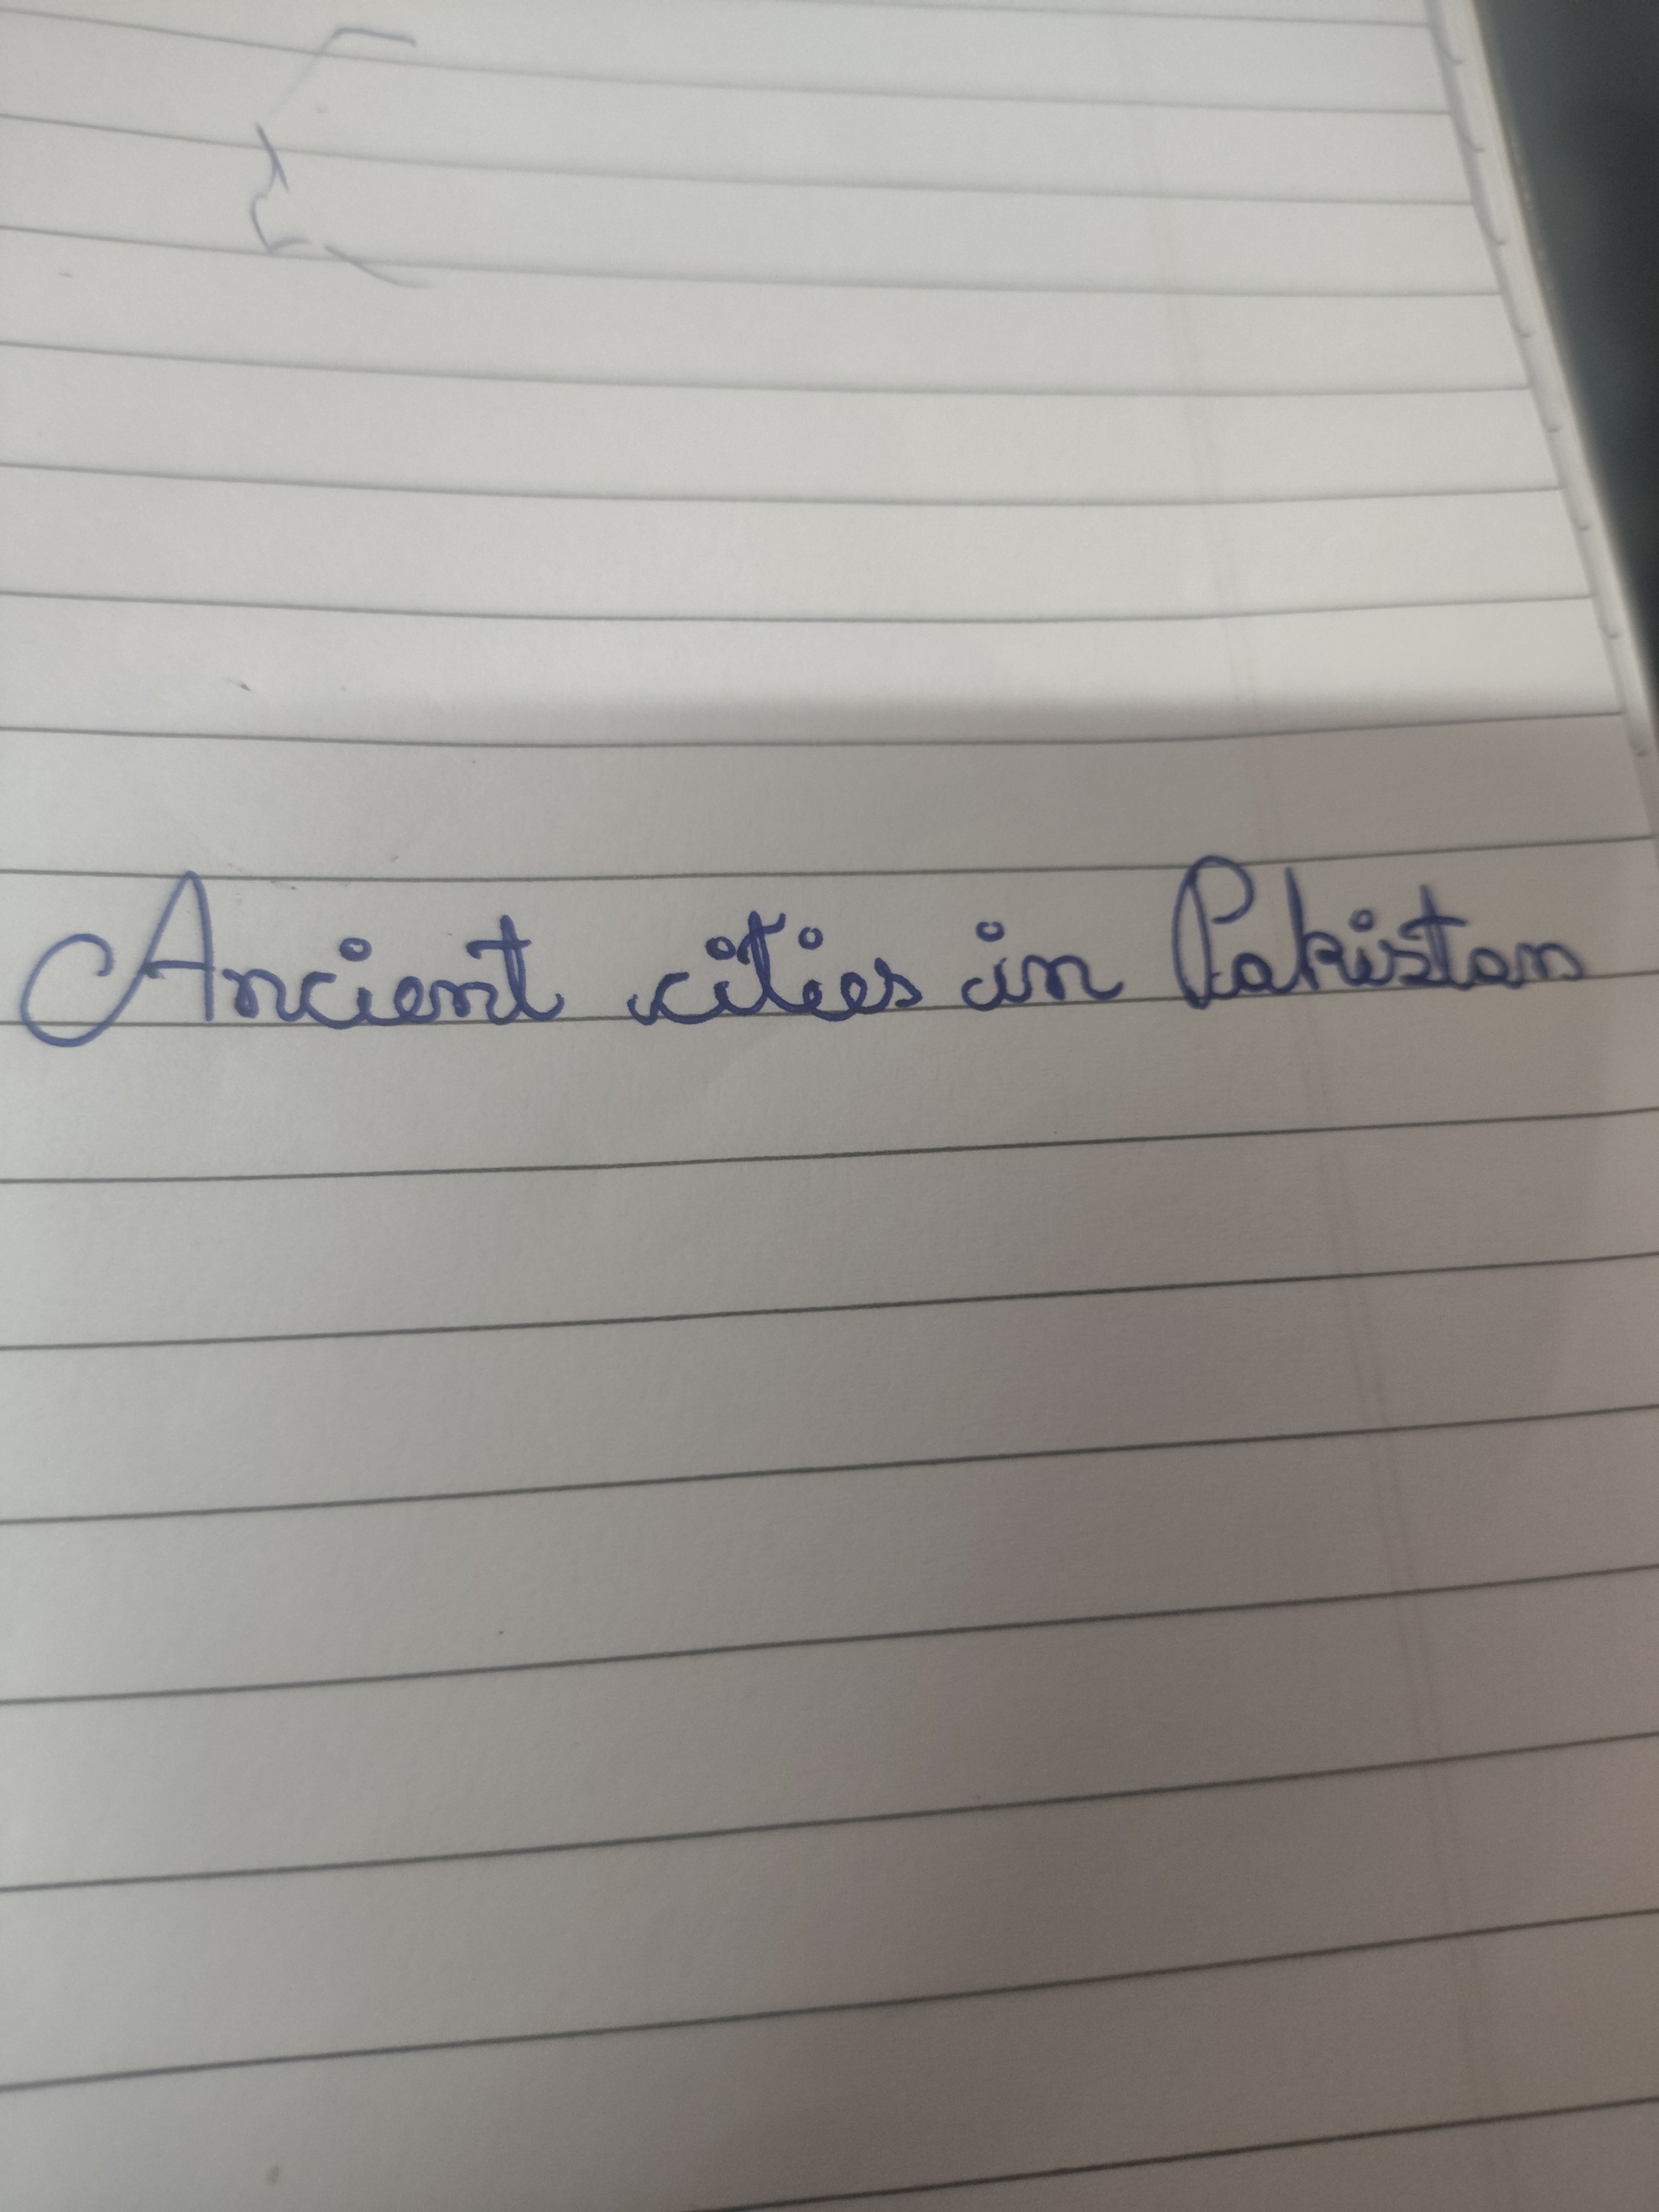 Ancient cities in Pakistan